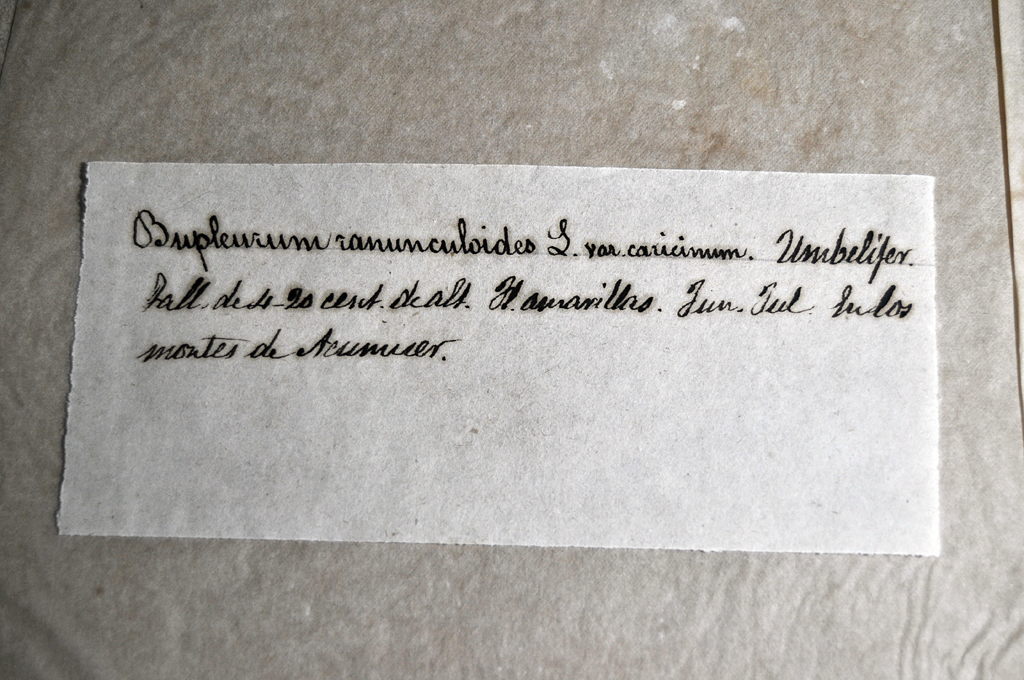 Bupleurum ranunculoides L. var. caricinum. Umbelifer.
Tall. de 4-20 cent. de alt. Fl. amarillas. Jun. Jul. En los
montes de Acumuer.